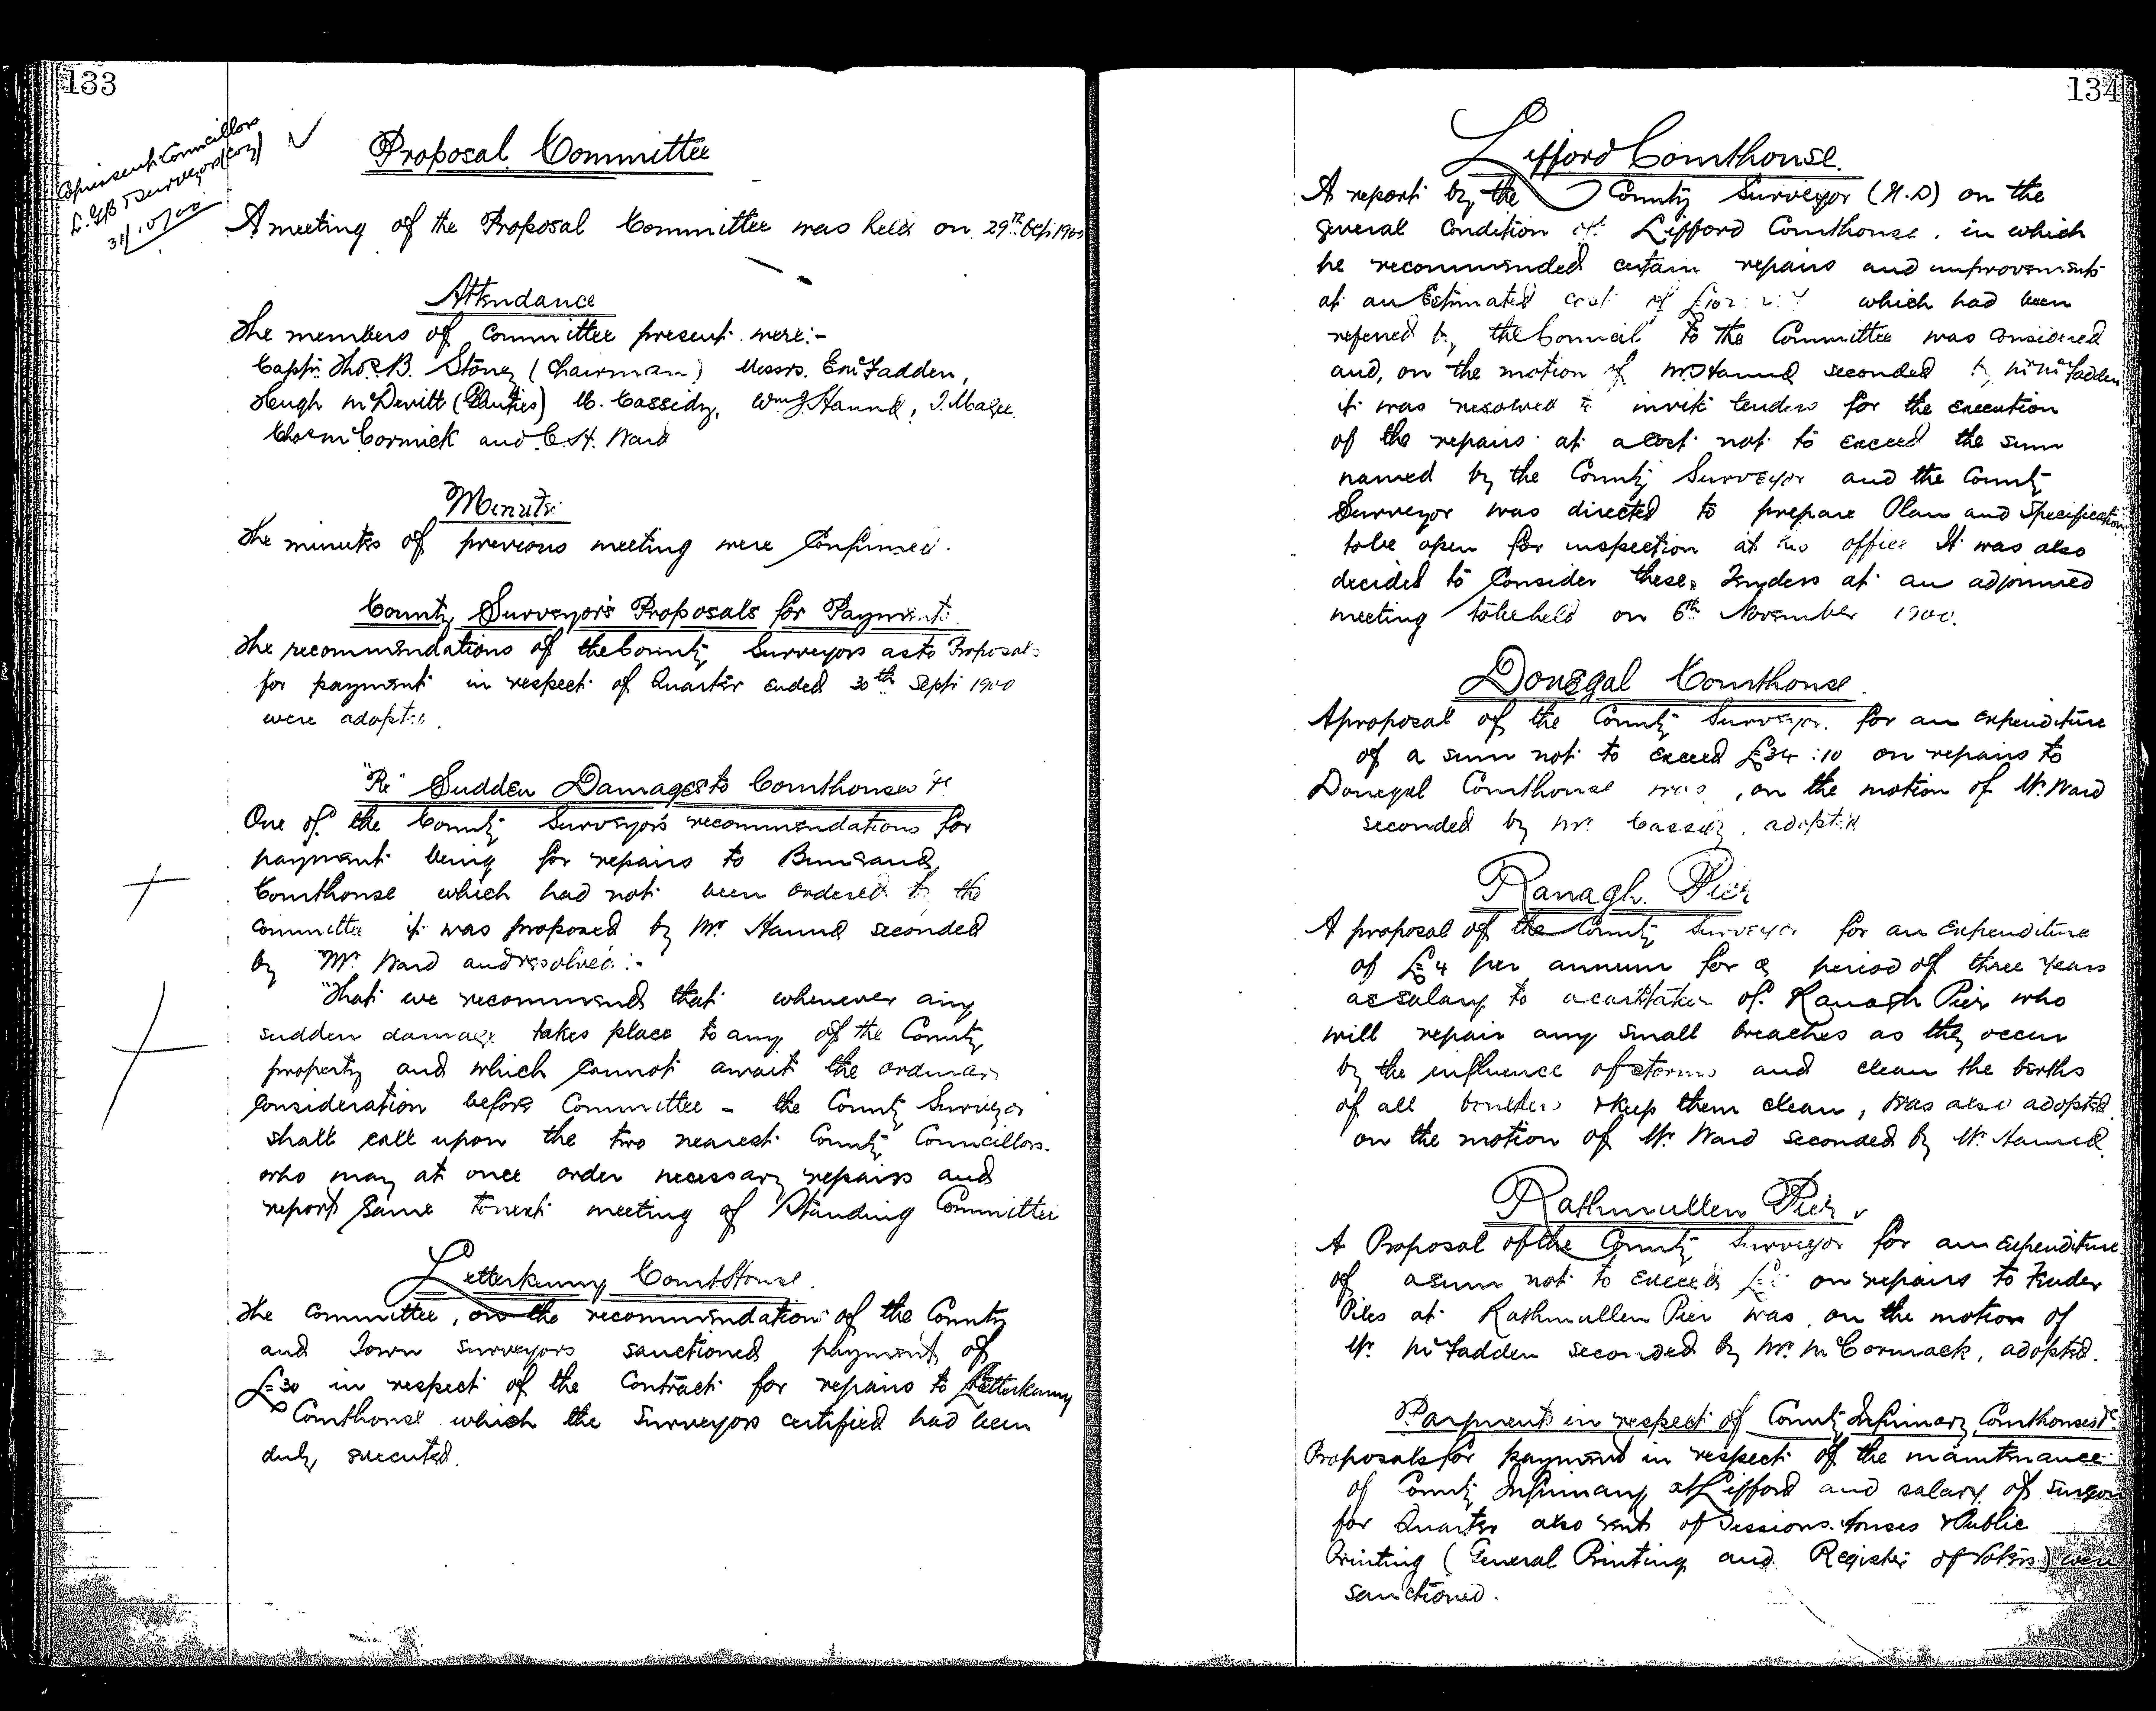 133
Copies sent Councillors
L.G.B & Surveyors
31/10/00
Proposal Committee
A meeting of the Proposal Committee was held on 29th 1900
Attendance
The members of Committee present were:-
Capt. Thos. B. Stoney (Chairman) Messrs. E McFadden,
Hugh McDevitt (Glenties) M. Cassidy, Wm J Hanna, J. Magee
Chas McCormick and C. H. Ward
Minutes
The minutes of previous meeting were Confirmed.
County Surveyor's Proposals for Payments
The recommendations of the County Surveyors as to Proposals
for payment in respect of Quarter ended 30th Sept 1900
were adopted.
"Re" Sudden Damages to Courthouses &c
One of the County Surveyor's recommendations for
payment being for repairs to Buncrana
Courthouse which had not been ordered by the
Committee it was proposed by Mr Hanna seconded
by Mr. Ward and resolved:-
"That we recommend that whenever any
sudden damage takes place to any of the County
property and which cannot await the ordinary
consideration before Committee - the County Surveyor
shall call upon the two nearest County Councillors
who may at once order necessary repairs and
report same to next meeting of Standing Committee
Letterkenny CourtHouse.
The Committee, on the recommendation of the County
and Town Surveyors sanctioned payment of
£30 in respect of the Contract for repairs to Letterkenny
Courthouse which the Surveyors certified had been
duly executed.
134
Lifford Courthouse.
A report by the County Surveyor (N.D) on the
general Condition of Lifford Courthouse, in which
he recommended certain repairs and improvements
at an Estimated cost of which had been
referred by the Council to the Committee was considered
and, on the motion of Mr Hanna seconded by Mr McFadden
it was resolved to invite tenders for the execution
of the repairs at a Cost not to exceed the sum
named by the County Surveyor and the County
Surveyor was directed to prepare Plan and Specification
to be open for inspection at his office It was also
decided to Consider these Tenders at an adjourned
meeting to be held on 6th November 1900.
Donegal Courthouse.
A proposal of the County Surveyor. for an expenditure
of a sum not to exceed £34:10 on repairs to
Donegal Courthouse was, on the motion of Mr. Ward
seconded by Mr. Cassidy, adopted
Ranagh Pier
A proposal of the County Surveyor for an Expenditure
of £4 per annum for a period of three years
as salary to a caretaker of Ranagh Pier who
will repair any small breaches as they occur
by the influence of storms and clean the berths
of all boulders & keep them clean, was also adopted
on the motion of Mr. Ward seconded by Mr. Hanna.
Rathmullen Pier
A Proposal of the County Surveyor for an expenditure
of a sum not to exceed on repairs to Fender
Piles at Rathmullen Pier was, on the motion of
Mr. McFadden seconded by Mr. McCormack, adopted.
Payments in respect of County Infirmary, Courthouses &c
Proposals for payment in respect of the maintenance
of County Infirmary at Lifford and salary of Surgeon
for Quarter also rents of Sessions houses & Public
Printing (General Printing and Register of Voters) were
sanctioned.